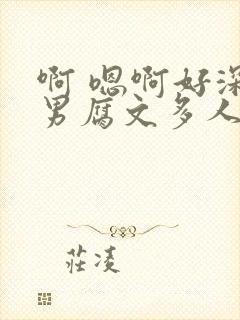 啊 嗯啊好深
男腐文多人
莊凌